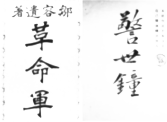 鄒容遺著
革命軍
警世鐘